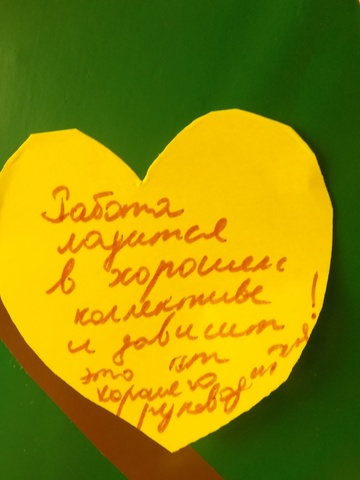 Работа
ладится
в хорошем
коллективе
и зависит
это от
хорошего
руководителя!